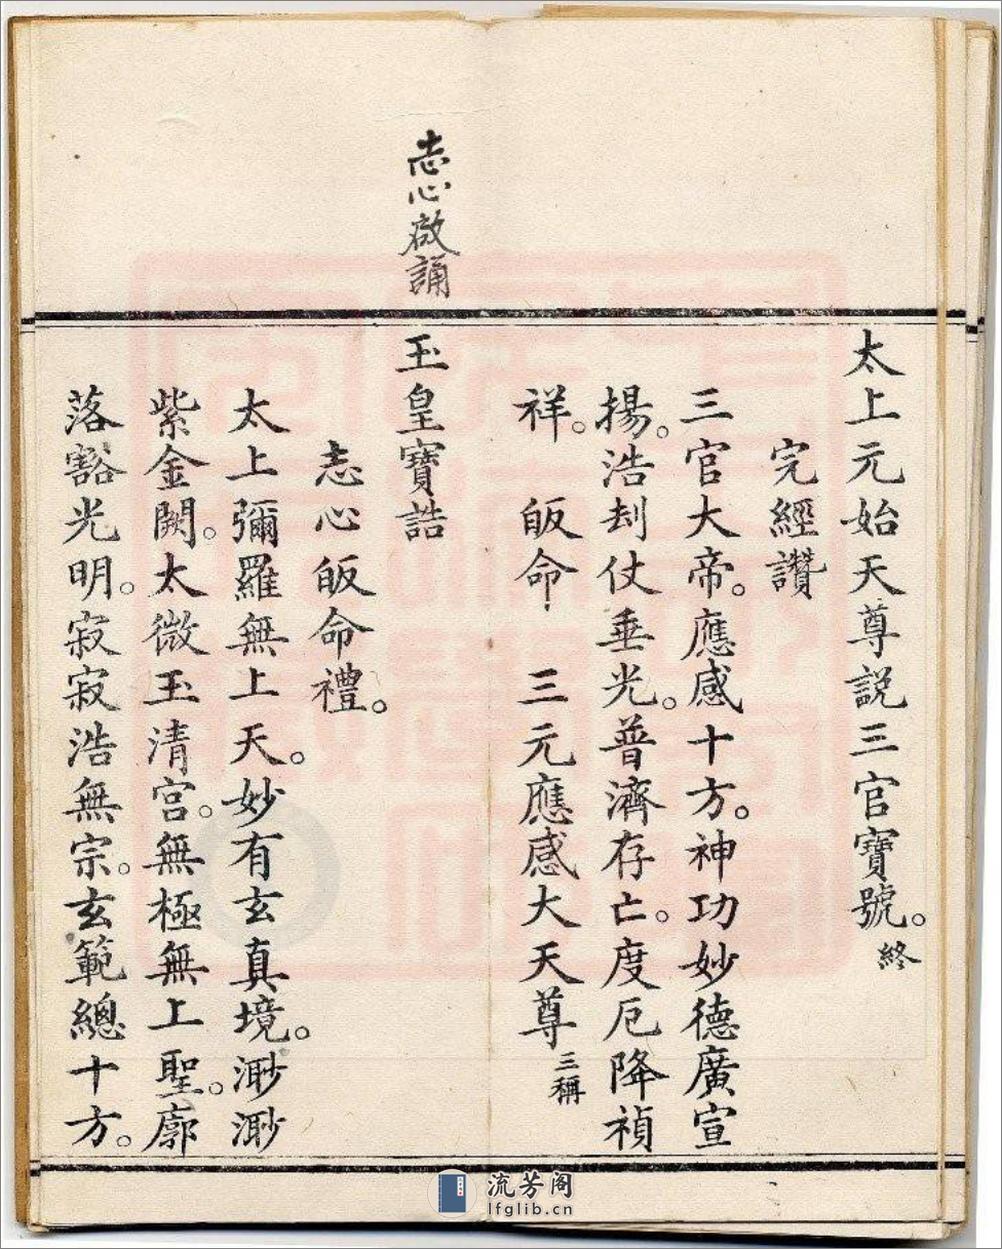 太上元始天尊説三官寶號。終
完經讚
三官大帝。應感十方。神功妙德廣宣
揚。浩刦仗垂光。普濟存亡。度厄降禎
祥。皈命 三元應感大天尊三稱
志心啟誦
玉皇寶誥
志心皈命禮。
太上彌羅無上天。妙有玄真境。渺渺
紫金闕。太微玉清宫。無極無上聖。廓
落豁光明。寂寂浩無宗。玄範總十方。
流芳阁
lfglib.cn